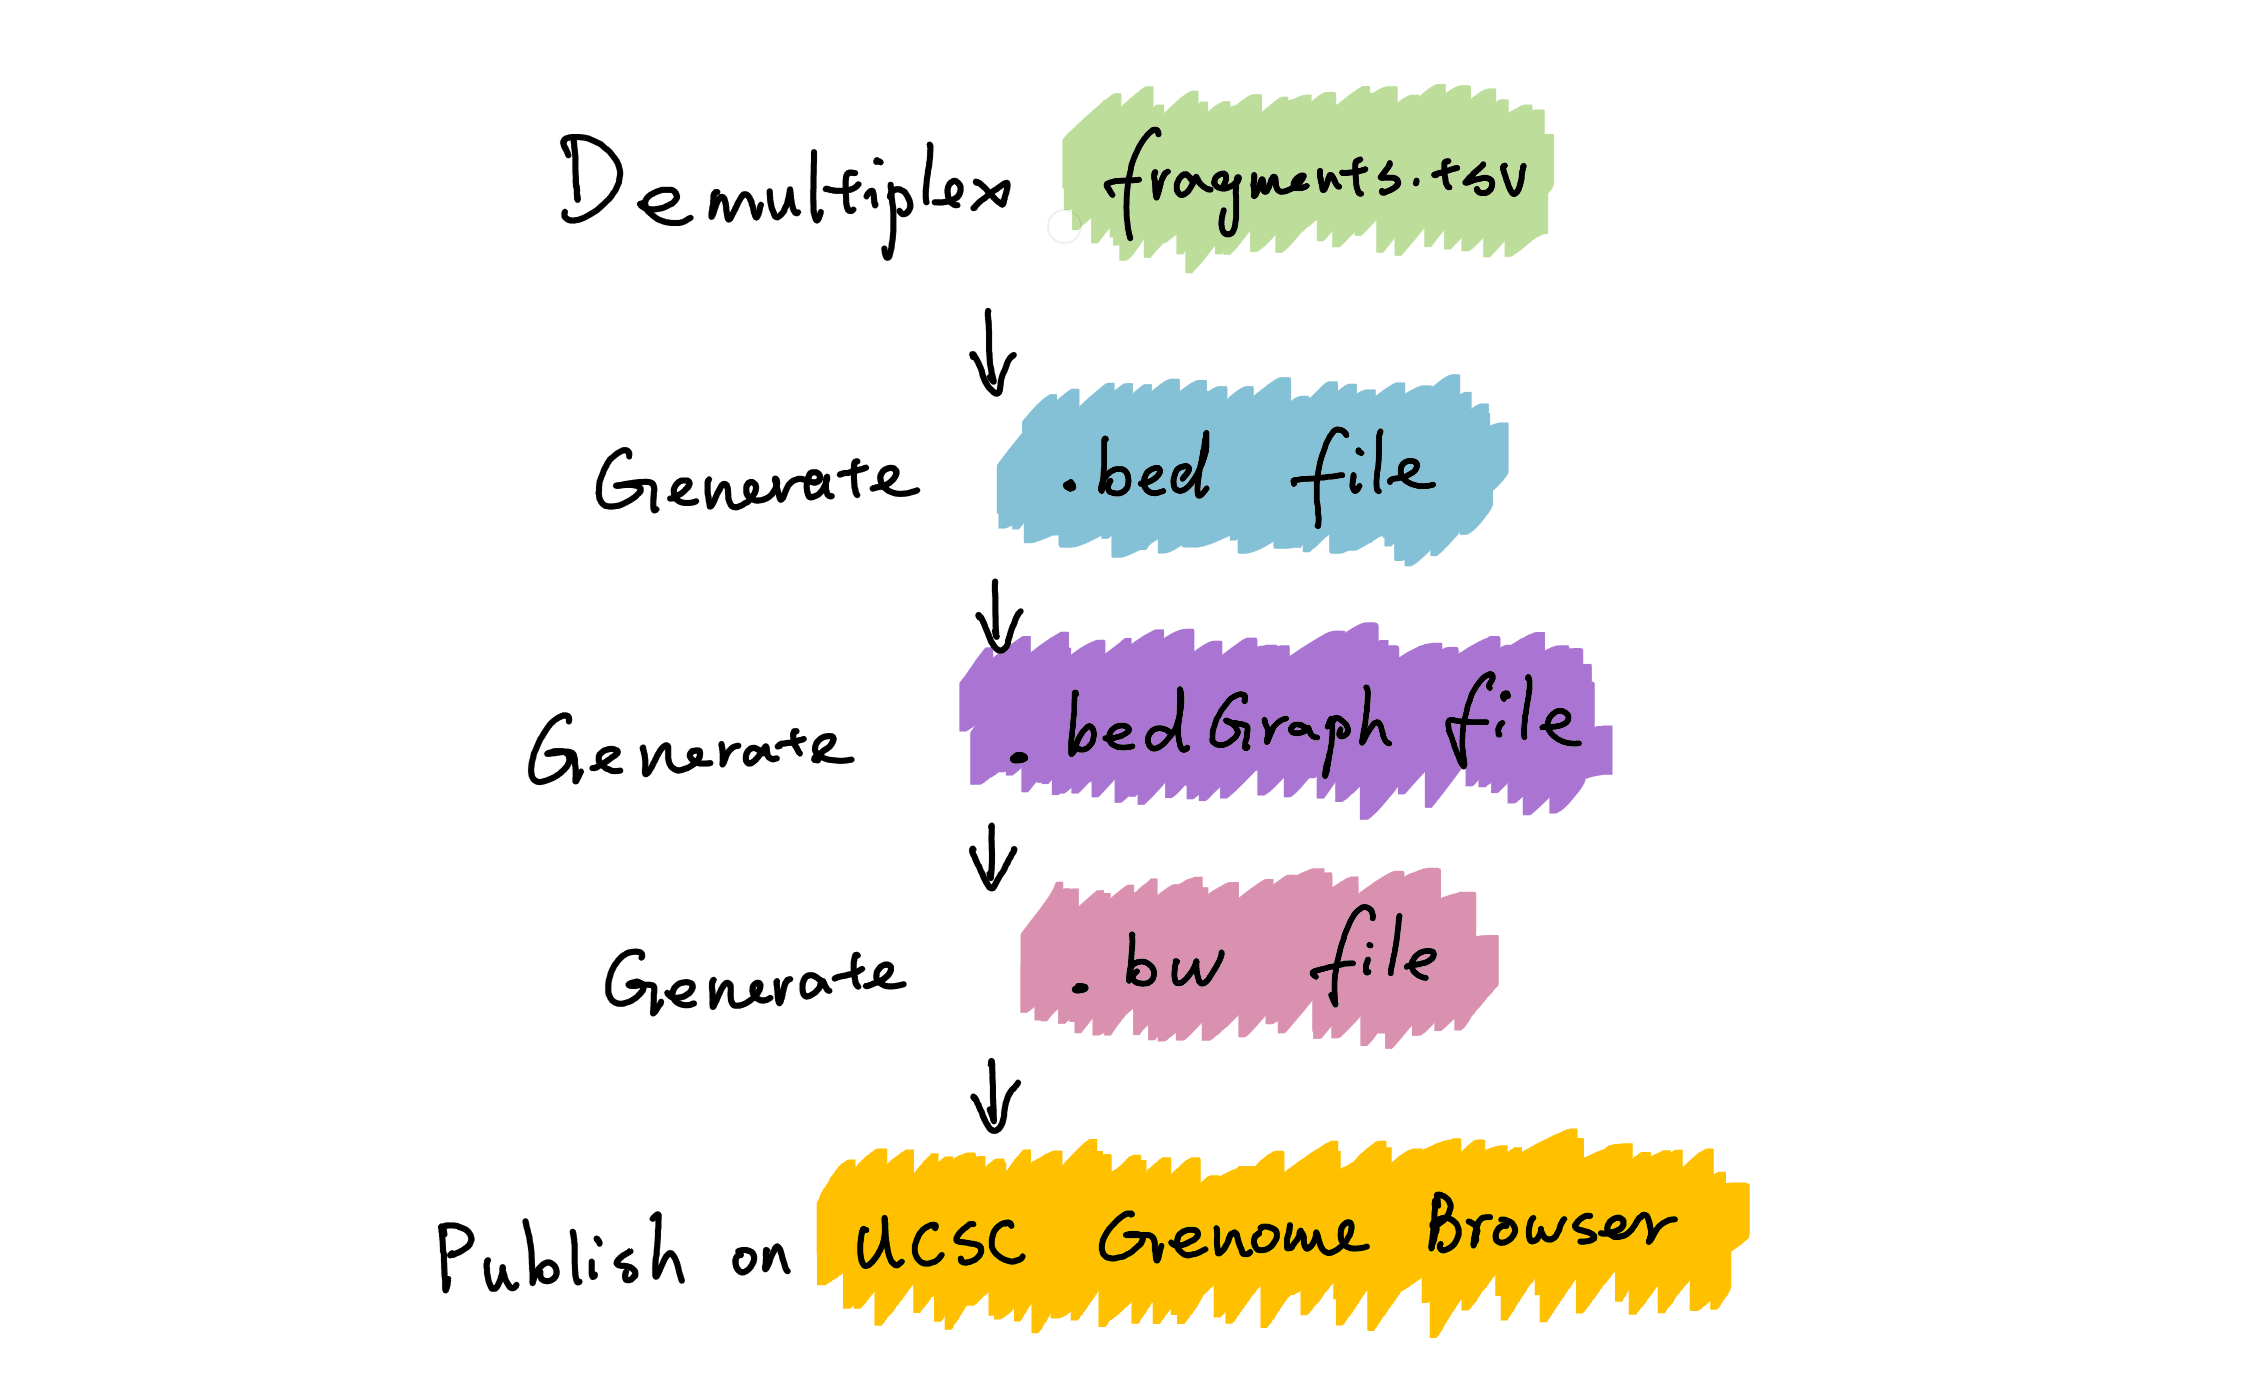 Demultiplex fragments.tsv
Generate .bed file
Generate .bedGraph file
Generate .bw file
Publish on UCSC Genome Browser